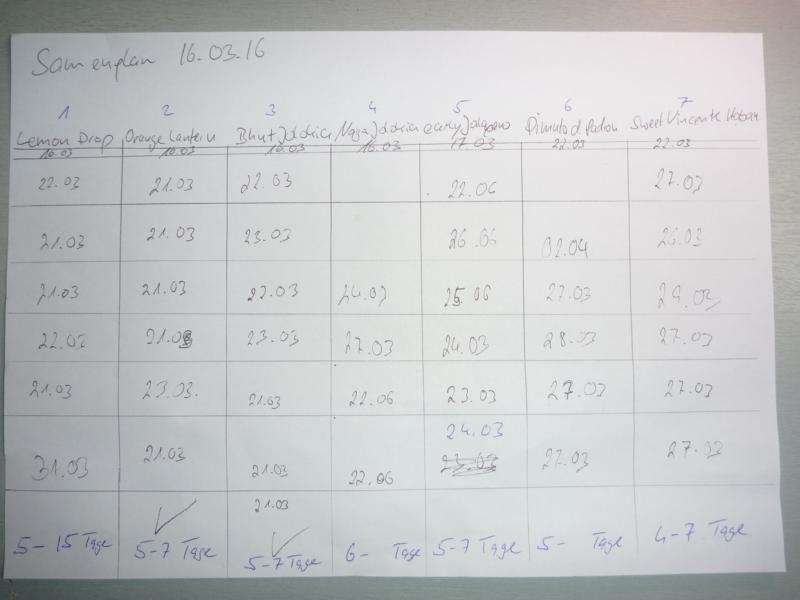 Samenplan 16.03.16
1 2 3 4 5 6 7
Lemon Drop Orange Lantern Bhut Jolokia Naga Jolokia early Jalapeno Pimuto d. Padron Sweet Vincente
16.03 16.03 16.03 16.03 17.03 22.03 22.03
22.03 21.03 22.03 22.06 27.03
21.03 21.03 23.03 26.06 02.04 26.03
21.03 21.03 22.03 24.03 25.06 27.03 29.03
22.03 21.03 23.03 27.03 24.03 28.03 27.03
21.03 23.03. 21.03 22.06 23.03 27.03 27.03
24.03
31.03 21.03 21.03 22.06 22.03 27.03
21.03
5-15 Tage 5-7 Tage 5-7 Tage 6- Tage 5-7 Tage 5- Tage 4-7 Tage